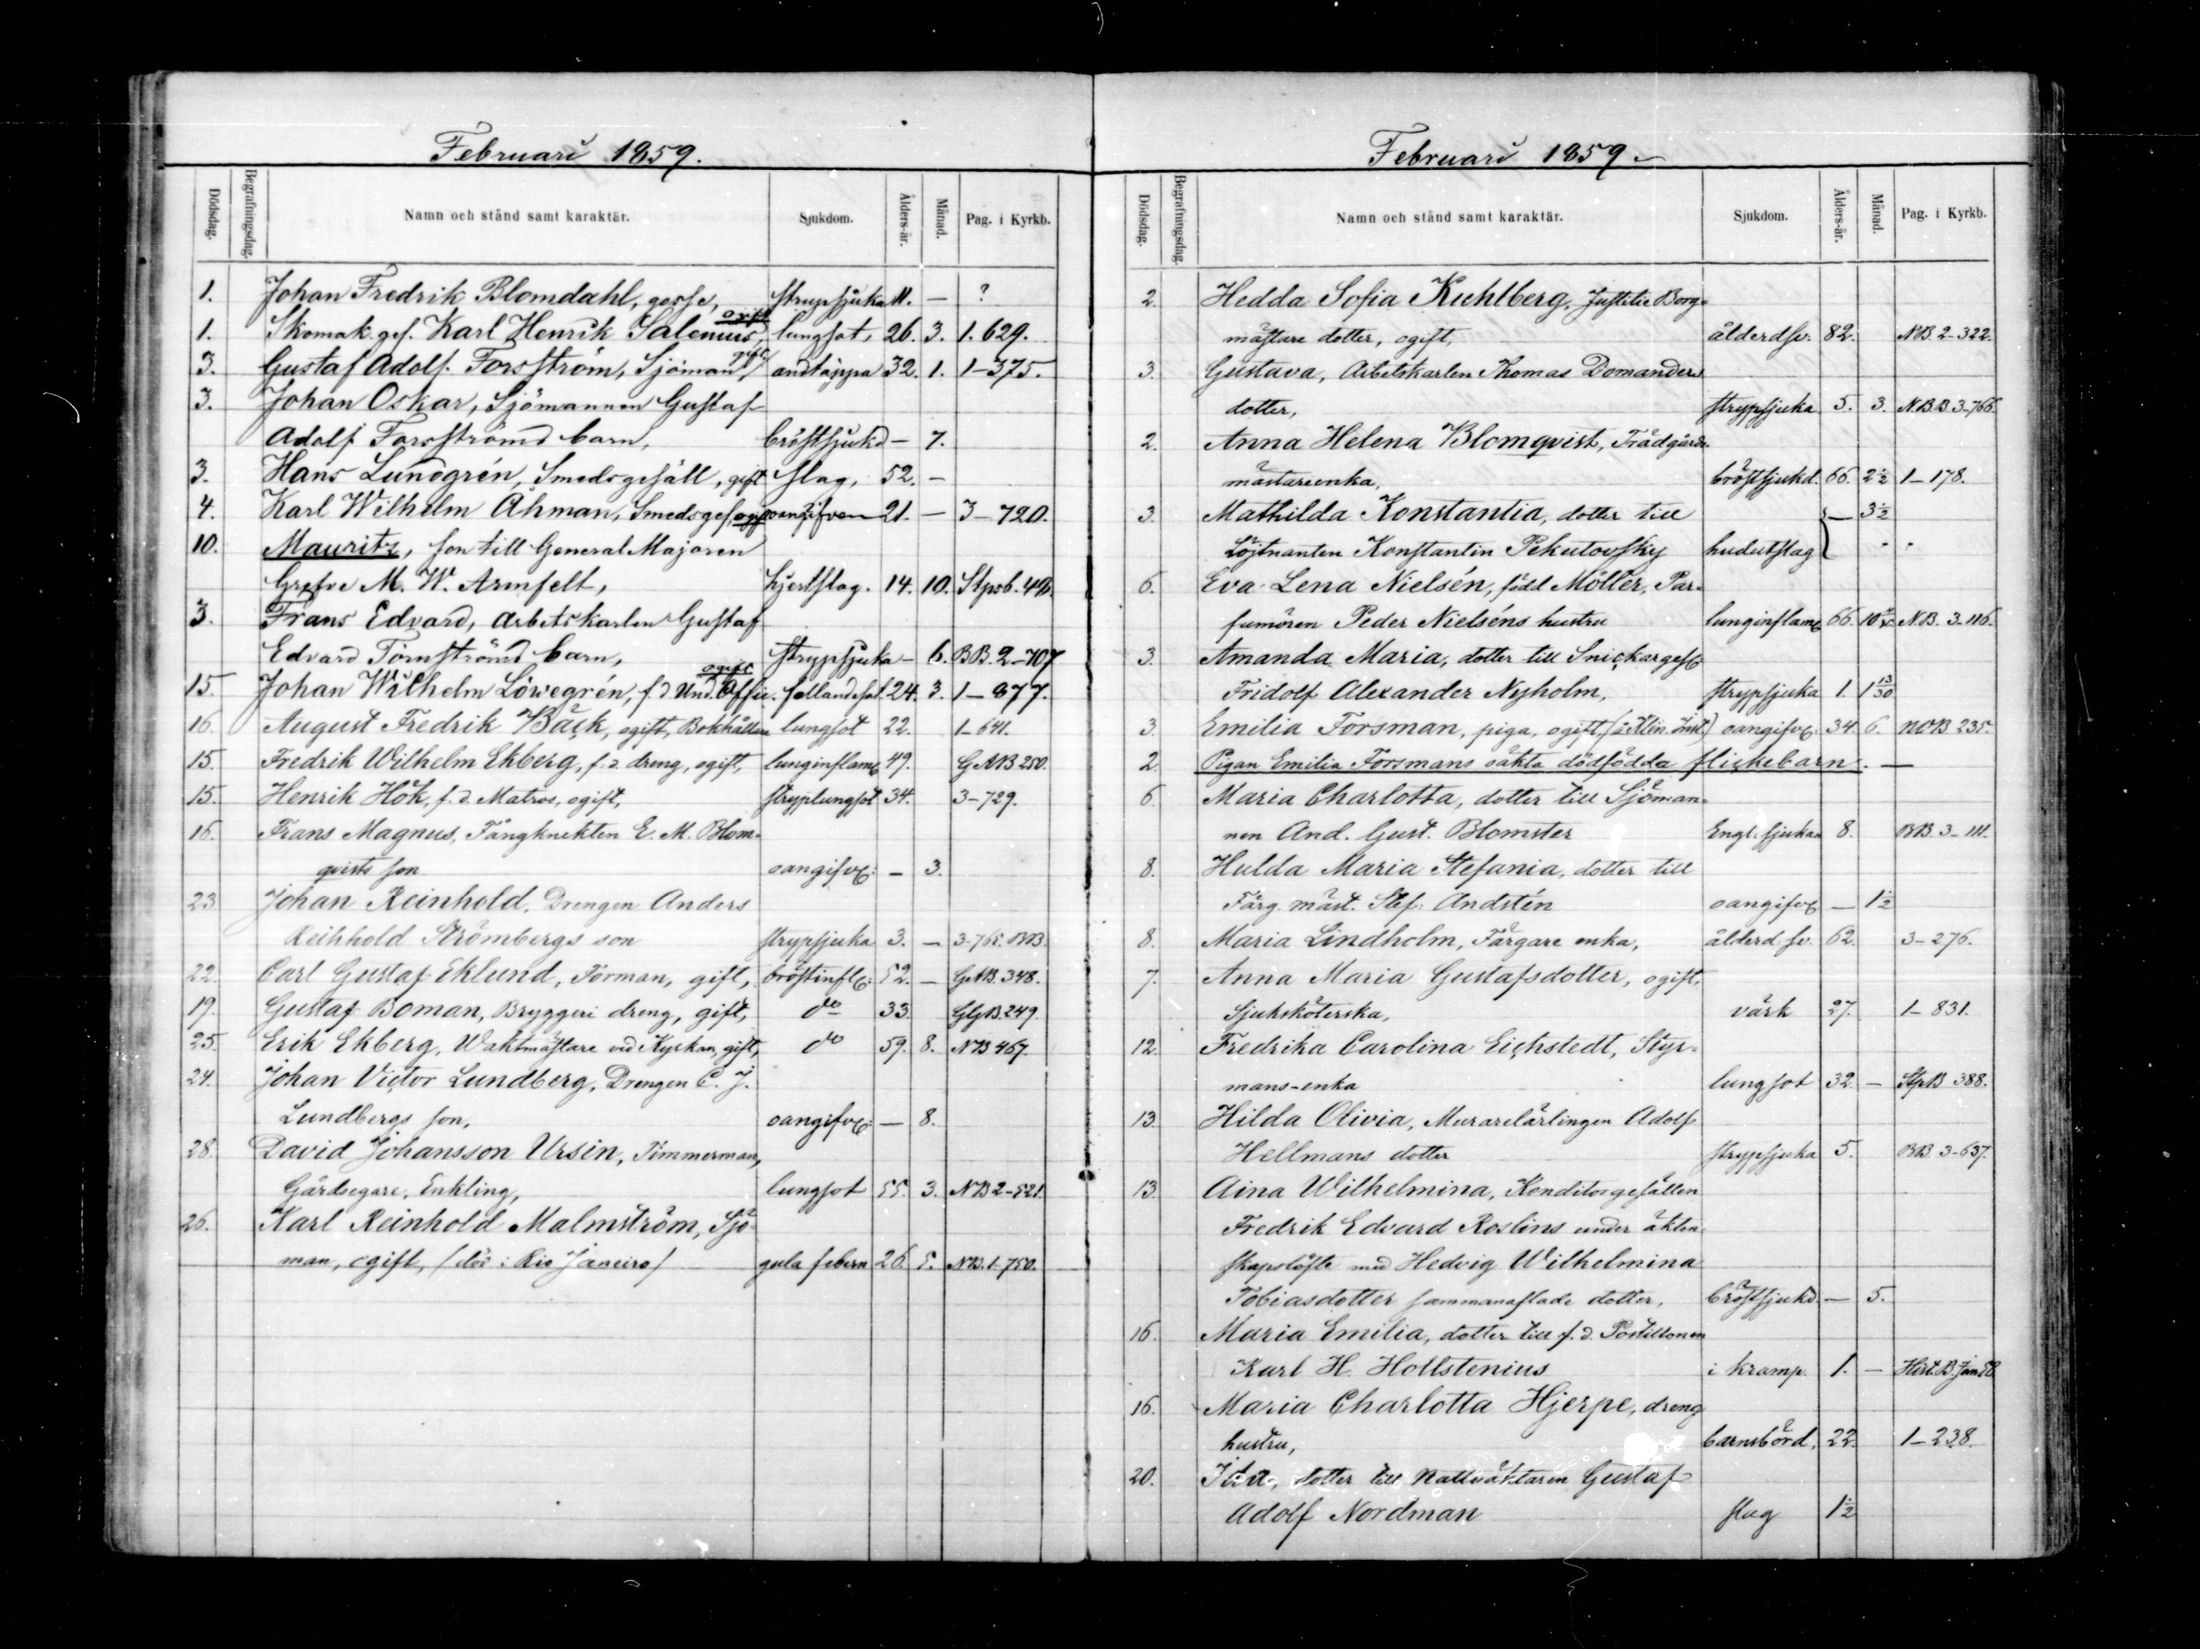 Februari 1859.
Dödsdag. Begrafningsdag. Namn och stånd samt karaktär. Sjukdom. Ålders-år. Månad. Pag. i Kyrkb.
1. Johan Fredrik Blomdahl, gosse, strypsjuka 11. — ?
ogift
1. Skomak. ges. Karl Henrik Salenius, lungsot, 26. 3. 1. 629.
gift
3. Gustaf Adolf Forsström, Sjöman, andtäppa 32. 1. 1–375.
3. Johan Oskar, Sjömannen Gustaf
Adolf Forsströms barn, bröstsjukd — 7.
3. Hans Lundgrén, Smedsgesäll, gift slag, 52. —
4. Karl Wilhelm Åhman, Smedsges, ogift oangifven 21. — 3–720.
10. Mauritz, son till General Majoren
Grefve M. W. Armfelt, hjertslag. 14. 10. Stpsb. 49.
3. Frans Edvard, Arbetskarlen Gustaf
Edvard Törnströms barn, strypsjuka — 6. BB. 2–707
ogift
15. Johan Wilhelm Löwegrén, f.d. Und. Offic. fallandesot. 24. 3. 1–877.
16. August Fredrik Bäck, ogift, Bokhållare lungsot 22. 1–641.
15. Fredrik Wilhelm Ekberg, f.d. dreng, ogift, lunginflam: 49. GAB 250.
15. Henrik Hök, f.d. Matros, ogift, stryplungsot 34. 3–729.
16. Frans Magnus, Fångknekten E. M. Blom-
qvists son oangifv: — 3.
23 Johan Reinhold, Drengen Anders
Reihhold Strömbergs son strypsjuka 3. — 3–765. BB
22. Carl Gustaf Eklund, Förman, gift, bröstinfl: 52. — GAB. 348.
19. Gustaf Boman, Bryggeri dreng, gift, do 33. GGB. 249
25. Erik Ekberg, Waktmästare vid Kyrkan, gift, do 59. 8. NB 467.
24. Johan Victor Lundberg, Drengen C. J.
Lundbergs son, oangifv: — 8.
28. David Johansson Ursin, Timmerman,
Gårdsegare, Enkling, lungsot 55. 3. NB 2–521.
26. Karl Reinhold Malmström, Sjö-
man, ogift, /död i Rio Janeiro/ gula febern 26. 5. NB. 1–750.
Februari 1859.
Dödsdag. Begrafningsdag. Namn och stånd samt karaktär. Sjukdom. Ålders-år. Månad. Pag. i Kyrkb.
2. Hedda Sofia Kuhlberg, Justitie Borg-
mästare dotter, ogift, ålderdsv. 82. NB. 2–322.
3. Gustava, Arbetskarlen Thomas Domanders
dotter, strypsjuka 5. 3. NBB. 3–766.
2. Anna Helena Blomqvist, Trädgårds-
mästareenka, bröstsjukd. 66. 2½ 1–178.
3. Mathilda Konstantia, dotter till — 3½
Löjtnanten Konstantin Pekutovsky hudutslag
6. Eva Lena Nielsén, född Möller, Par-
fumören Peder Nielséns hustru lunginflam: 66. 10 NB. 3–116.
3. Amanda Maria, dotter till Snickarges:
Fridolf Alexander Nyholm, strypsjuka 1. 1 13/30
3. Emilia Forsman, piga, ogift, (å Klin. Inst.) oangifv: 34. 6. NOB 235.
2. Pigan Emilia Forsmans oäkta dödfödda flickebarn. —
6. Maria Charlotta, dotter till Sjöman-
nen And. Gust. Blomster Engl: sjukan 8. BB. 3–111.
8. Hulda Maria Stefania, dotter till
Färg. mäst. Stef: Andstén oangifv: — 1½
8. Maria Lindholm, Färgare enka, ålderd. sv. 62. 3–276.
7. Anna Maria Gustafsdotter, ogift,
Sjuksköterska, värk 27. 1–831.
12. Fredrika Carolina Eichstedt, Styr-
mans-enka lungsot 32. — StpB 388.
13. Hilda Olivia, Murarelärlingen Adolf
Hellmans dotter strypsjuka 5. BB. 3–637.
13. Aina Wilhelmina, Konditorgesällen
Fredrik Edvard Roslins under äkten-
skapslöfte med Hedvig Wilhelmina
Tobiasdotter sammanaflade dotter, bröstsjukd. — 5.
16. Maria Emilia, dotter till f.d. Postillonen
Karl H. Hollstenius i kramp. 1. — Hist. B. Jan. 58
16. Maria Charlotta Hjerpe, dreng
hustru, barnsbörd, 22. 1–238.
20. Ida, dotter till Nattväktaren Gustaf
Adolf Nordman slag 1½